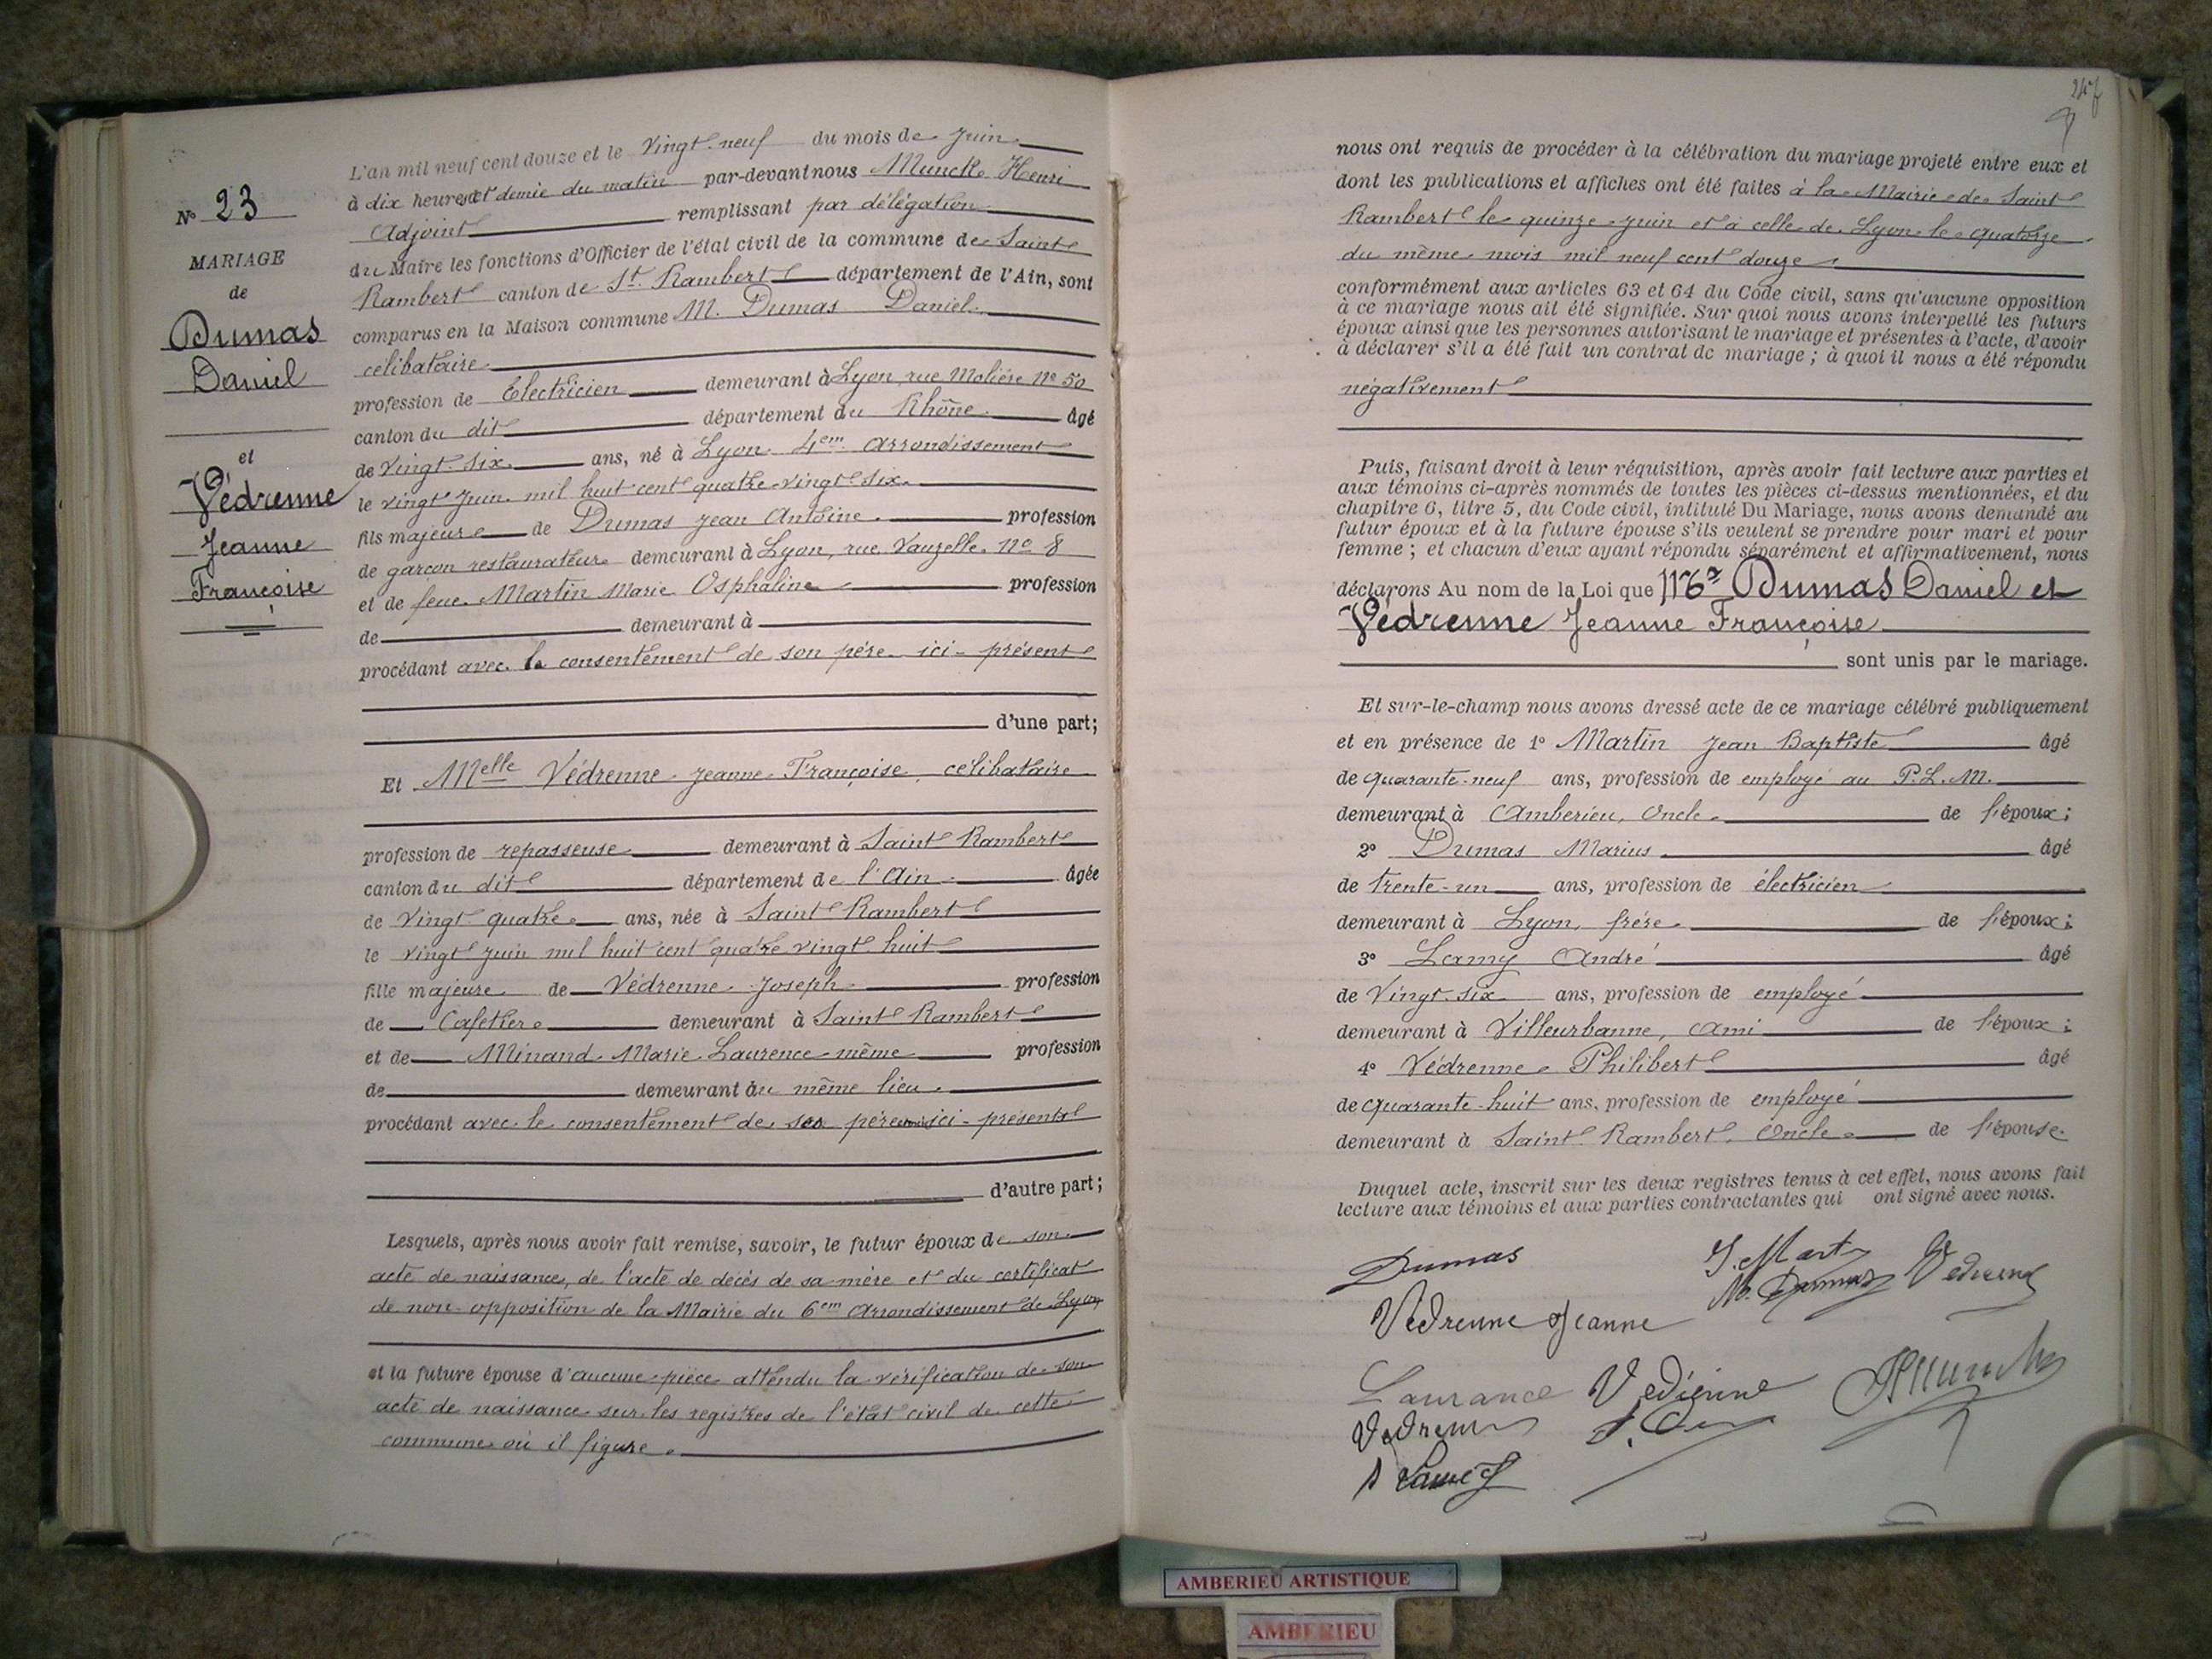 N° 23
MARIAGE
de
Dumas
Daniel
et
Védrenne
Jeanne
Françoise
L'an mil neuf cent douze et le Vingt-neuf du mois de Juin
à dix heures et demie du matin par-devant nous Munck Henri
Adjoint remplissant par délégation
du Maire les fonctions d'Officier de l'état civil de la commune de Saint
Rambert canton de St. Rambert département de l'Ain, sont
comparus en la Maison commune M. Dumas Daniel
célibataire
profession de Electricien demeurant à Lyon, rue Molière n° 50
canton du dit département du Rhône âgé
de Vingt-six ans, né à Lyon 4em Arrondissement
le vingt Juin mil huit cent quatre-vingt six
fils majeur de Dumas Jean Antoine profession
de garçon restaurateur demeurant à Lyon, rue Vauzelle n° 8
et de feue Martin Marie Osphaline profession
de demeurant à
procédant avec le consentement de son père ici-présent
d'une part;
Et Melle Védrenne Jeanne Françoise, célibataire
profession de repasseuse demeurant à Saint Rambert
canton du dit département de l'Ain âgée
de Vingt quatre ans, née à Saint Rambert
le vingt Juin mil huit cent quatre vingt huit
fille majeure de Védrenne Joseph profession
de Cafetier demeurant à Saint Rambert
et de Minand Marie Laurence même profession
de demeurant au même lieu
procédant avec le consentement de ses père ici-présents
d'autre part;
Lesquels, après nous avoir fait remise, savoir, le futur époux de son
acte de naissance, de l'acte de décès de sa mère et du certificat
de non-opposition de la Mairie du 6em Arrondissement de Lyon
et la future épouse d'aucune pièce attendu la vérification de son
acte de naissance sur les registres de l'état civil de cette
commune où il figure.
247
nous ont requis de procéder à la célébration du mariage projeté entre eux et
dont les publications et affiches ont été faites à la Mairie de Saint
Rambert le quinze Juin et à celle de Lyon le quatorze
du même mois mil neuf cent douze
conformément aux articles 63 et 64 du Code civil, sans qu'aucune opposition
à ce mariage nous ait été signifiée. Sur quoi nous avons interpellé les futurs
époux ainsi que les personnes autorisant le mariage et présentes à l'acte, d'avoir
à déclarer s'il a été fait un contrat de mariage ; à quoi il nous a été répondu
négativement
Puis, faisant droit à leur réquisition, après avoir fait lecture aux parties et
aux témoins ci-après nommés de toutes les pièces ci-dessus mentionnées, et du
chapitre 6, titre 5, du Code civil, intitulé Du Mariage, nous avons demandé au
futur époux et à la future épouse s'ils veulent se prendre pour mari et pour
femme ; et chacun d'eux ayant répondu séparément et affirmativement, nous
déclarons Au nom de la Loi que Mr Dumas Daniel et
Védrenne Jeanne Françoise
sont unis par le mariage.
Et sur-le-champ nous avons dressé acte de ce mariage célébré publiquement
et en présence de 1° Martin Jean Baptiste âgé
de quarante-neuf ans, profession de employé au P.L.M.
demeurant à Amberieu, Oncle de l'époux;
2° Dumas Marius âgé
de trente-un ans, profession de électricien
demeurant à Lyon, frère de l'époux;
3° Lamy André âgé
de Vingt-six ans, profession de employé
demeurant à Villeurbanne, ami de l'époux;
4° Védrenne Philibert âgé
de quarante-huit ans, profession de employé
demeurant à Saint Rambert, Oncle de l'épouse
Duquel acte, inscrit sur les deux registres tenus à cet effet, nous avons fait
lecture aux témoins et aux parties contractantes qui ont signé avec nous.
Dumas
J. Martin
M. Dumas
Vedrenne
Vedrenne Jeanne
Laurance Vedrenne
Vedrenne
AMBERIEU ARTISTIQUE
AMBERIEU